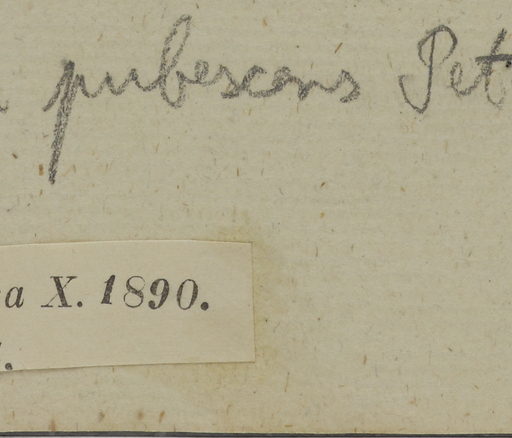 pubescens Pet
a X. 1890.